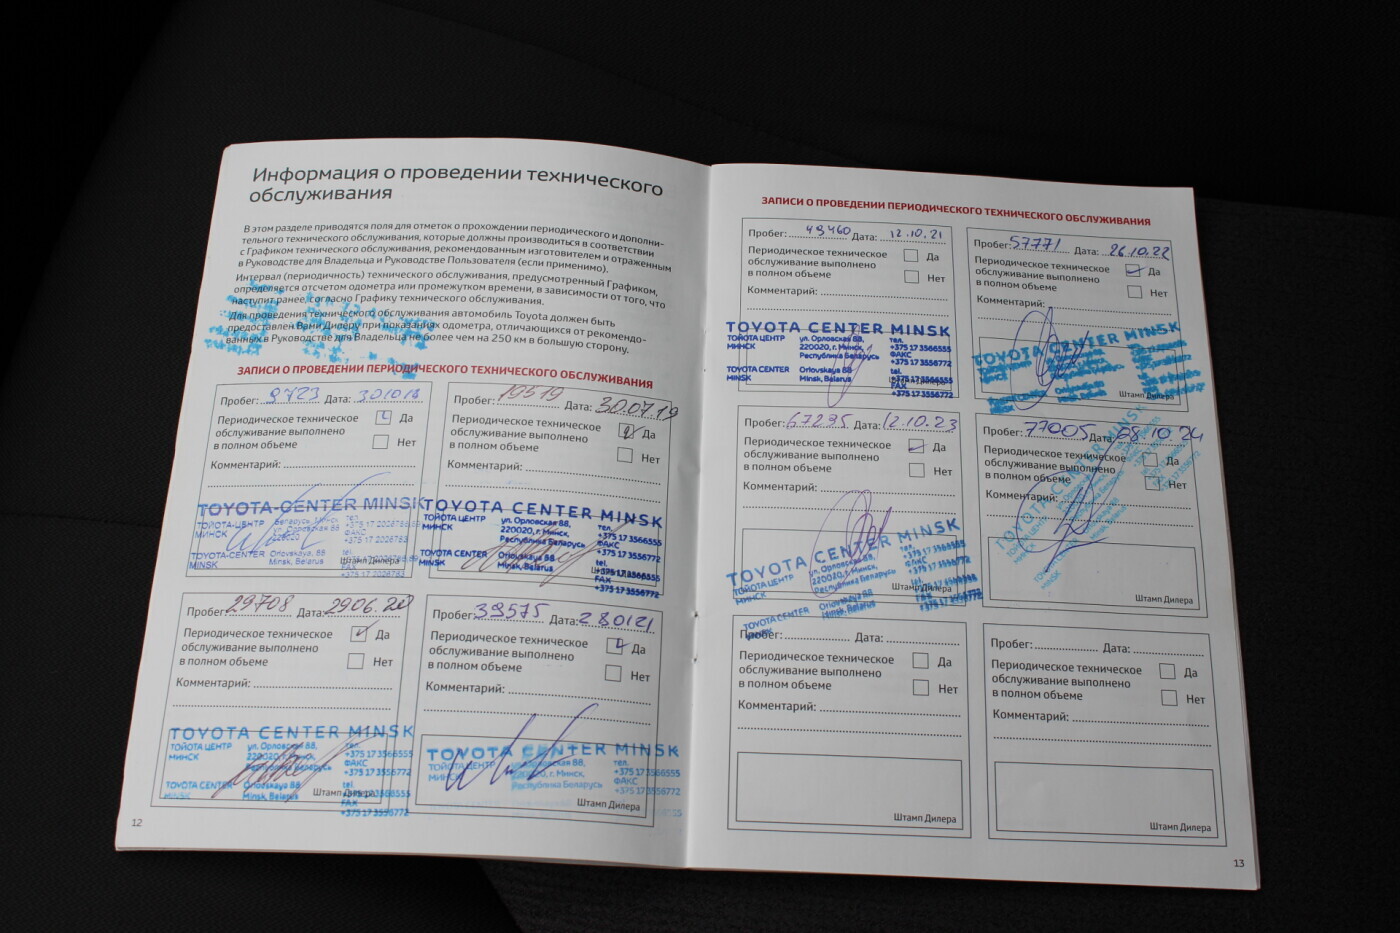 Информация о проведении технического
обслуживания
В этом разделе приводятся поля для отметок о прохождении периодического и дополни-
тельного технического обслуживания, которые должны производиться в соответствии
с Графиком технического обслуживания, рекомендованным изготовителем и отраженным
в Руководстве для Владельца и Руководстве Пользователя (если применимо).
Интервал (периодичность) технического обслуживания, предусмотренный Графиком,
определяется отсчетом одометра или промежутком времени, в зависимости от того, что
наступит ранее, согласно Графику технического обслуживания.
Для проведения технического обслуживания автомобиль Toyota должен быть
предоставлен Вами Дилеру при показаниях одометра, отличающихся от рекомендо-
ванных в Руководстве для Владельца не более чем на 250 км в большую сторону.
ЗАПИСИ О ПРОВЕДЕНИИ ПЕРИОДИЧЕСКОГО ТЕХНИЧЕСКОГО ОБСЛУЖИВАНИЯ
Пробег: 9723 Дата: 301018
Периодическое техническое
обслуживание выполнено
в полном объеме
Да
Нет
Комментарий:
TOYOTA CENTER MINSK
ТОЙОТА ЦЕНТР
МИНСК
Беларусь, Минск
ул. Орловская 88
220020
тел.
ФАКС
+375 17 2028783
TOYOTA CENTER
MINSK
Orlovskaya, 88
Minsk, Belarus
tel.
FAX
+375 17 2028783
Штамп Дилера
Пробег: 19519 Дата: 30.07.19
Периодическое техническое
обслуживание выполнено
в полном объеме
Да
Нет
Комментарий:
TOYOTA CENTER MINSK
ТОЙОТА ЦЕНТР
МИНСК
ул. Орловская 88,
220020, г. Минск,
Республика Беларусь
тел.
+375 17 3566555
ФАКС
+375 17 3556772
TOYOTA CENTER
MINSK
Orlovskaya 88
Minsk, Belarus
tel.
+375 17 3566555
FAX
+375 17 3556772
Пробег: 29708 Дата: 2906.20
Периодическое техническое
обслуживание выполнено
в полном объеме
Да
Нет
Комментарий:
TOYOTA CENTER MINSK
ТОЙОТА ЦЕНТР
МИНСК
ул. Орловская 88,
220020, г. Минск,
Республика Беларусь
тел.
+375 17 3566555
ФАКС
+375 17 3556772
TOYOTA CENTER
MINSK
Orlovskaya 88
Minsk, Belarus
tel.
+375 17 3566555
FAX
+375 17 3556772
Штамп Дилера
Пробег: 39575 Дата: 280121
Периодическое техническое
обслуживание выполнено
в полном объеме
Да
Нет
Комментарий:
TOYOTA CENTER MINSK
ТОЙОТА ЦЕНТР
МИНСК
ул. Орловская 88,
220020, г. Минск,
Республика Беларусь
тел.
+375 17 3566555
ФАКС
+375 17 3556772
Штамп Дилера
12
ЗАПИСИ О ПРОВЕДЕНИИ ПЕРИОДИЧЕСКОГО ТЕХНИЧЕСКОГО ОБСЛУЖИВАНИЯ
Пробег: 49460 Дата: 12.10.21
Периодическое техническое
обслуживание выполнено
в полном объеме
Да
Нет
Комментарий:
TOYOTA CENTER MINSK
ТОЙОТА ЦЕНТР
МИНСК
ул. Орловская 88,
220020, г. Минск,
Республика Беларусь
тел.
+375 17 3566555
ФАКС
+375 17 3556772
TOYOTA CENTER
MINSK
Orlovskaya 88
Minsk, Belarus
tel.
+375 17 3566555
FAX
+375 17 3556772
Штамп Дилера
Пробег: 57771 Дата: 26.10.22
Периодическое техническое
обслуживание выполнено
в полном объеме
Да
Нет
Комментарий:
TOYOTA CENTER MINSK
Штамп Дилера
Пробег: 67295 Дата: 12.10.23
Периодическое техническое
обслуживание выполнено
в полном объеме
Да
Нет
Комментарий:
TOYOTA CENTER MINSK
ТОЙОТА ЦЕНТР
МИНСК
ул. Орловская 88,
220020, г. Минск,
Республика Беларусь
TOYOTA CENTER
MINSK
Orlovskaya 88
Minsk, Belarus
Пробег: 77005 Дата: 08.10.24
Периодическое техническое
обслуживание выполнено
в полном объеме
Да
Нет
Комментарий:
TOYOTA CENTER MINSK
Штамп Дилера
Пробег: Дата:
Периодическое техническое
обслуживание выполнено
в полном объеме
Да
Нет
Комментарий:
Штамп Дилера
Пробег: Дата:
Периодическое техническое
обслуживание выполнено
в полном объеме
Да
Нет
Комментарий:
Штамп Дилера
13